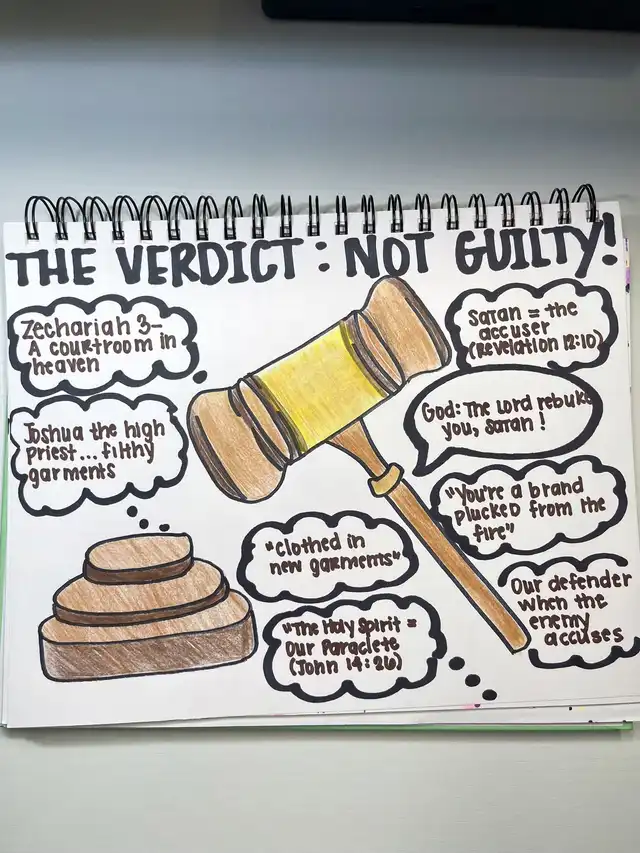 THE VERDICT: NOT GUILTY!
Zechariah 3-
A courtroom in
heaven
Joshua the high
priest... filthy
garments
Satan = the
accuser
(Revelation 12:10)
God: The Lord rebuke
you, Satan!
"You're a brand
plucked from the
fire"
"Clothed in
new garments"
Our defender
when the
enemy
accuses
"The Holy Spirit =
Our Paraclete
(John 14:26)